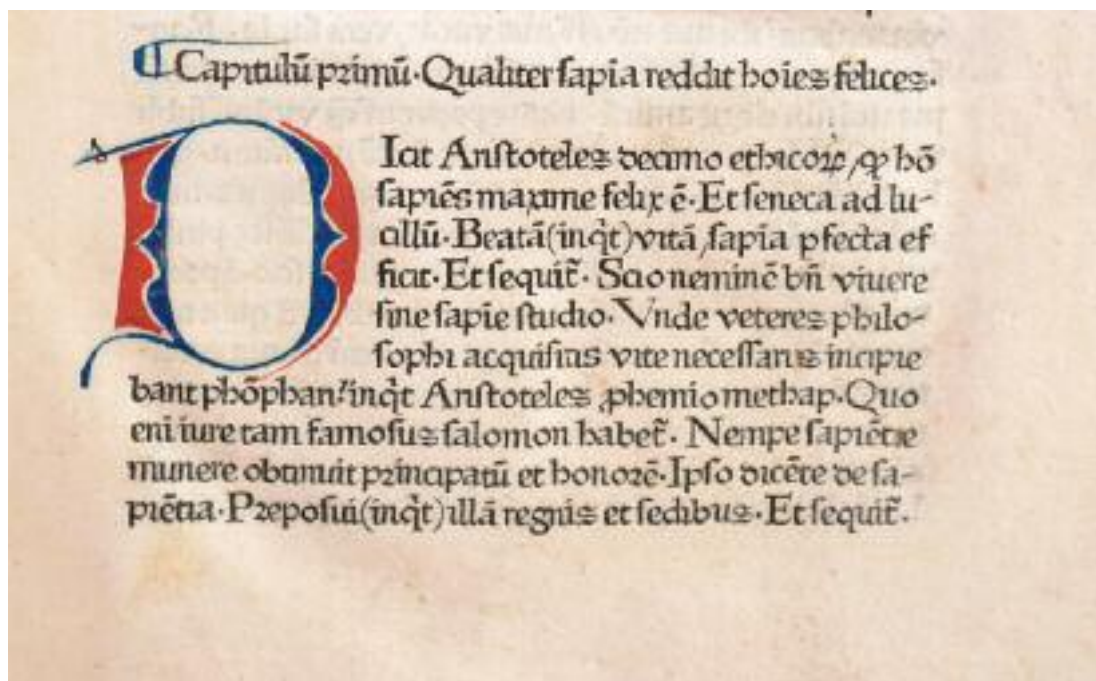 Capitulū primū·Qualiter sapīa reddit hoīes felices·
DIcit Aristoteles decimo ethicoꝝ, ꝙ hō
sapiēs maxime felix ē·Et seneca ad lu-
cillū·Beatā(inq̇t)vitā sapīa ꝑfecta ef
ficit·Et sequit᷑·Scio neminē bn̄ viuere
sine sapīe studio·Vnde veteres philo-
sophi acquisitis vite necessariis incipie
bant phōphari·inq̇t Aristoteles ꝓhemio methap·Quo
eni iure tam famosus salomon habet᷑·Nempe sapiētie
munere obtinuit principatū et honorē·Ipso dicēte de sa-
piētia·Preposui(inq̇t)illā regnis et sedibus·Et sequit᷑·